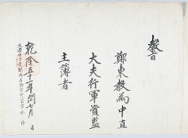 教旨
鄭東教為中直
大夫行軍資監
主簿者
乾隆五十一年閏七月 日